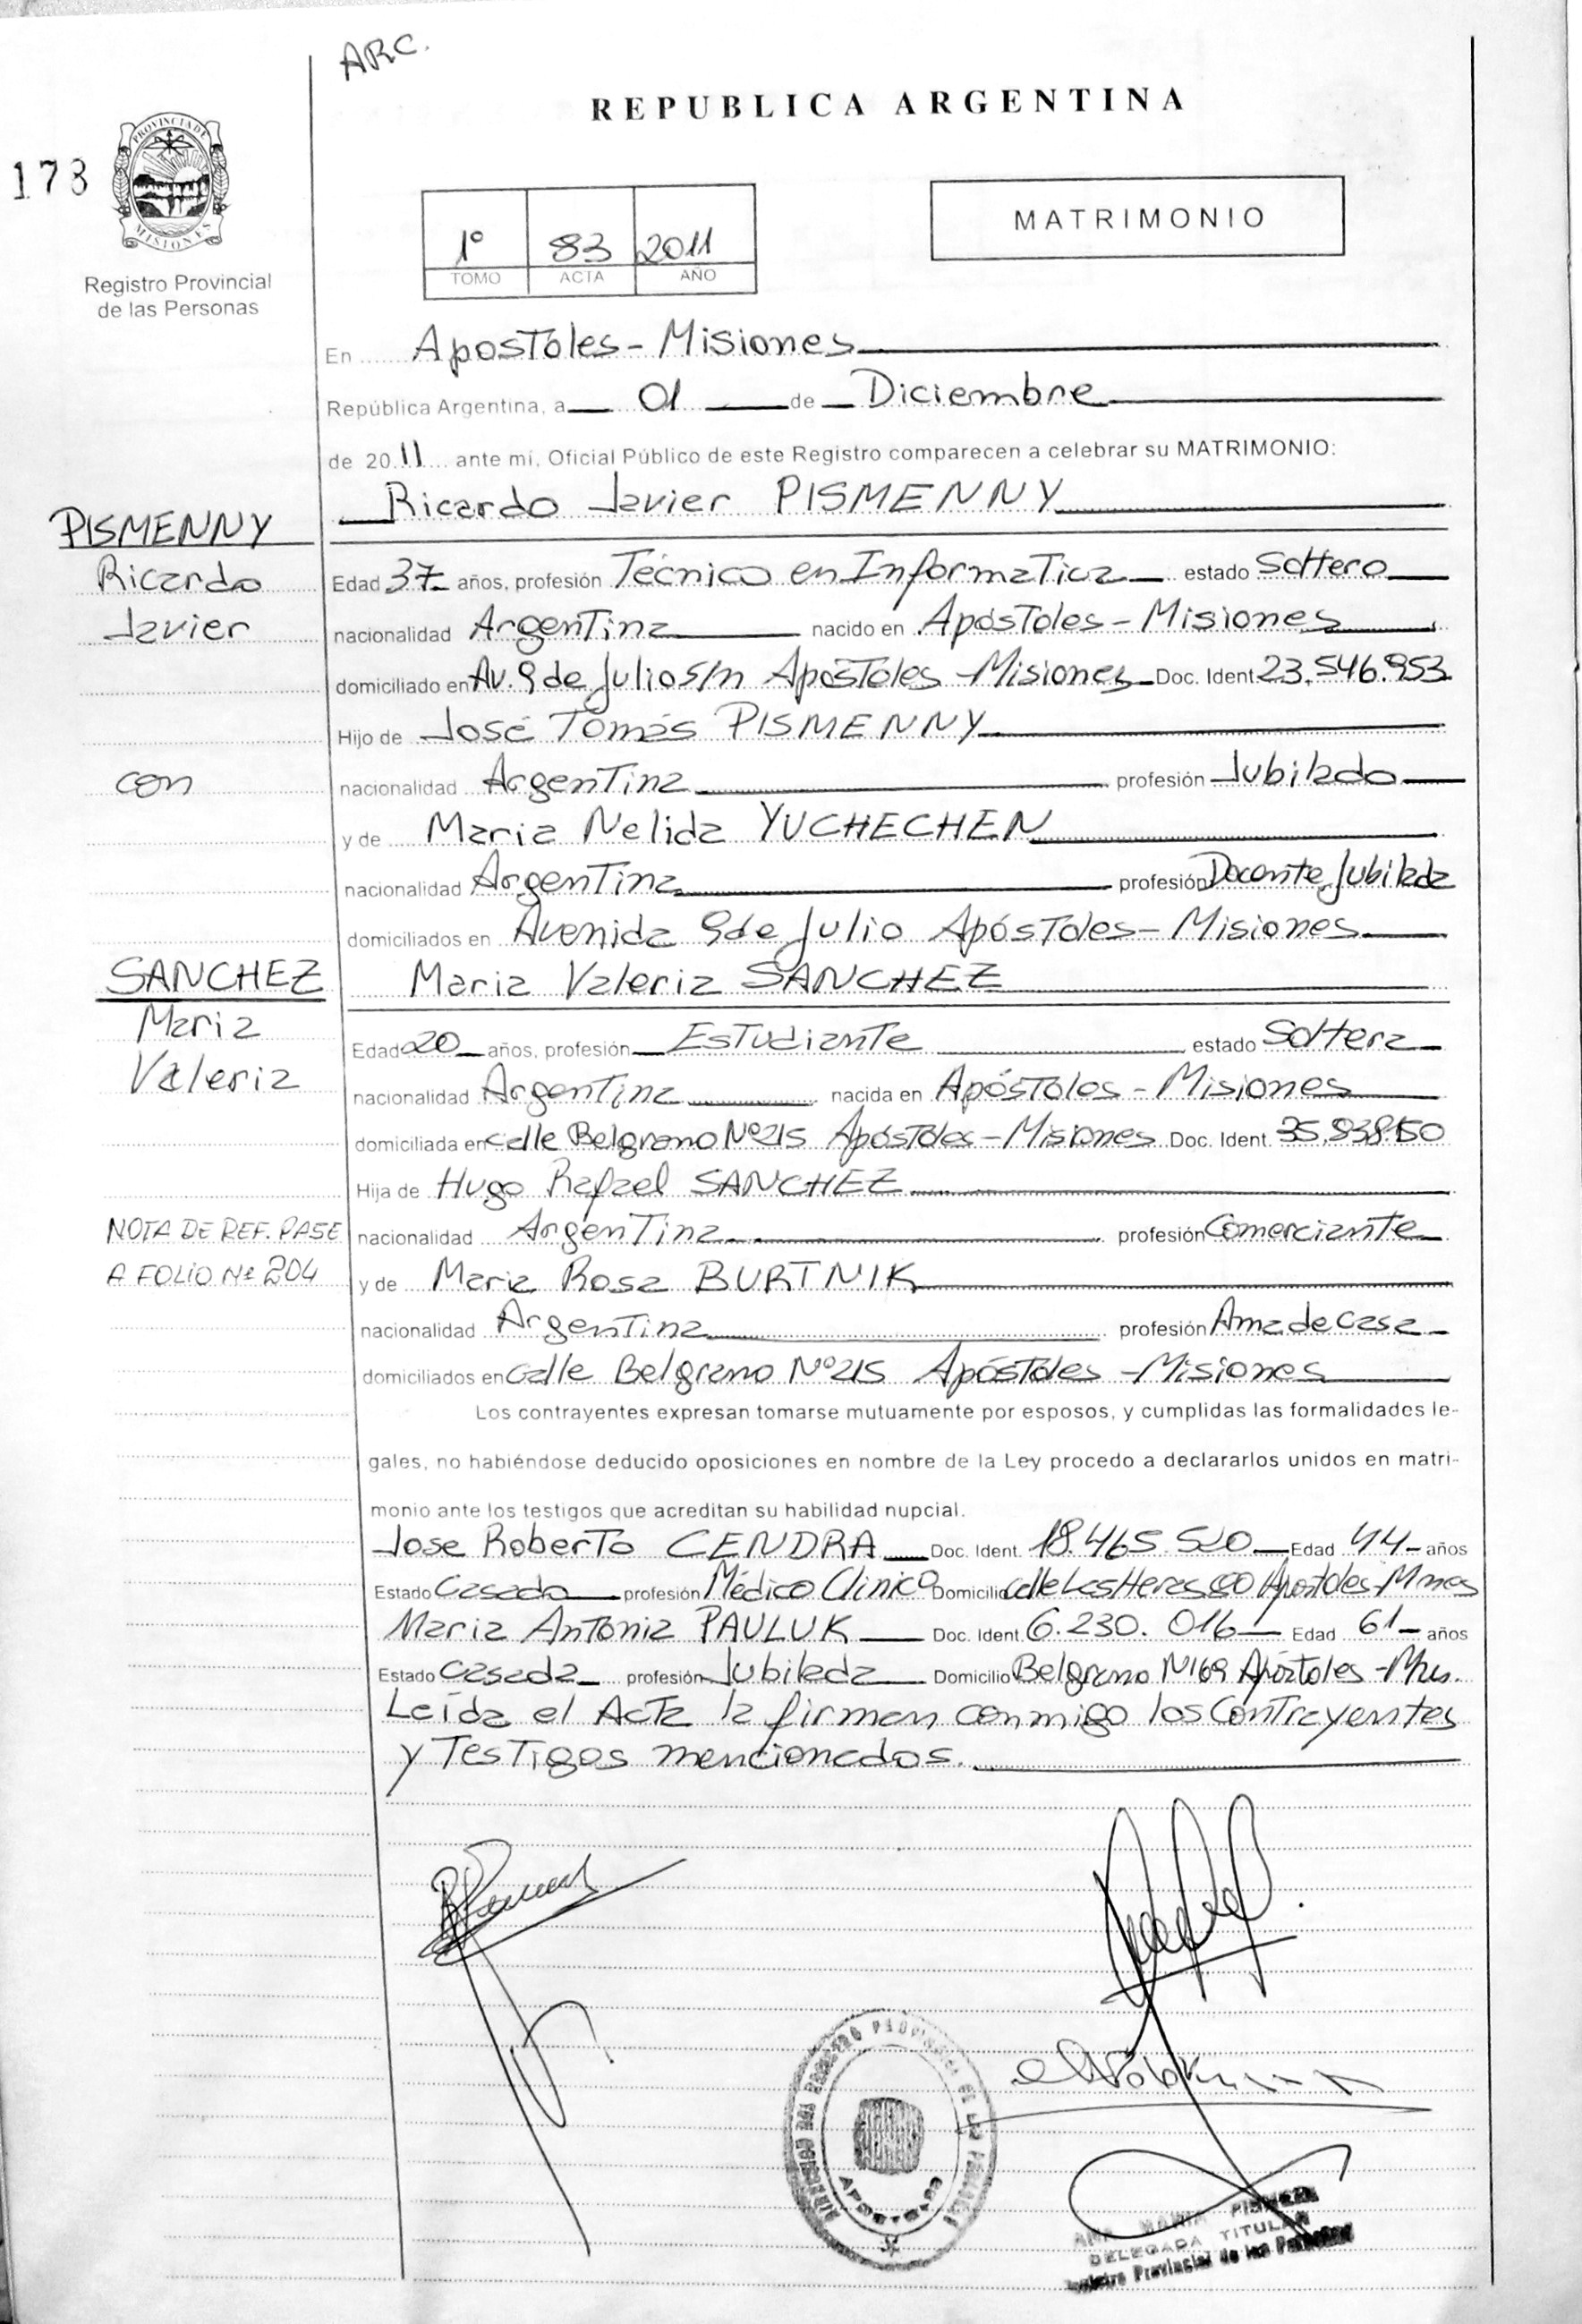 ARC.
REPUBLICA ARGENTINA
173
PROVINCIA DE
MISIONES
Registro Provincial
de las Personas
1º 83 2011
TOMO ACTA AÑO
MATRIMONIO
En Apostoles - Misiones
República Argentina, a 01 de Diciembre
de 2011 ante mi, Oficial Público de este Registro comparecen a celebrar su MATRIMONIO:
Ricardo Javier PISMENNY
PISMENNY
Ricardo
Javier
con
SANCHEZ
Maria
Valeria
NOTA DE REF. PASE
A FOLIO Nº 204
Edad 37 años, profesión Técnico en Informatica estado Soltero
nacionalidad Argentina nacido en Apóstoles - Misiones
domiciliado en Av. 9 de Julio s/n Apóstoles - Misiones Doc. Ident 23.546.953
Hijo de José Tomás PISMENNY
nacionalidad Argentina profesión Jubilado
y de Maria Nelida YUCHECHEN
nacionalidad Argentina profesión Docente Jubilada
domiciliados en Avenida 9 de Julio Apóstoles - Misiones
Maria Valeria SANCHEZ
Edad 20 años, profesión Estudiante estado Soltera
nacionalidad Argentina nacida en Apóstoles - Misiones
domiciliada en calle Belgrano Nº 215 Apóstoles - Misiones Doc. Ident.
Hija de Hugo Rafael SANCHEZ
nacionalidad Argentina profesión Comerciante
y de Maria Rosa BURTNIK
nacionalidad Argentina profesión Ama de casa
domiciliados en Calle Belgrano Nº 215 Apóstoles - Misiones
Los contrayentes expresan tomarse mutuamente por esposos, y cumplidas las formalidades le-
gales, no habiéndose deducido oposiciones en nombre de la Ley procedo a declararlos unidos en matri-
monio ante los testigos que acreditan su habilidad nupcial.
Jose Roberto CENDRA Doc. Ident. 18.465.520 Edad 44 años
Estado Casado profesión Médico Clinico Domicilio calle Las Heras Apostoles - Mnes
Maria Antonia PAULUK Doc. Ident. 6.230.016 Edad 61 años
Estado Casada profesión Jubilada Domicilio Belgrano Nº 169 Apóstoles -
Leída el Acta la firman conmigo los Contrayentes
y Testigos mencionados.
APOSTOLES
ANA MARIA
DELEGADA TITULAR
Registro Provincial de las Personas